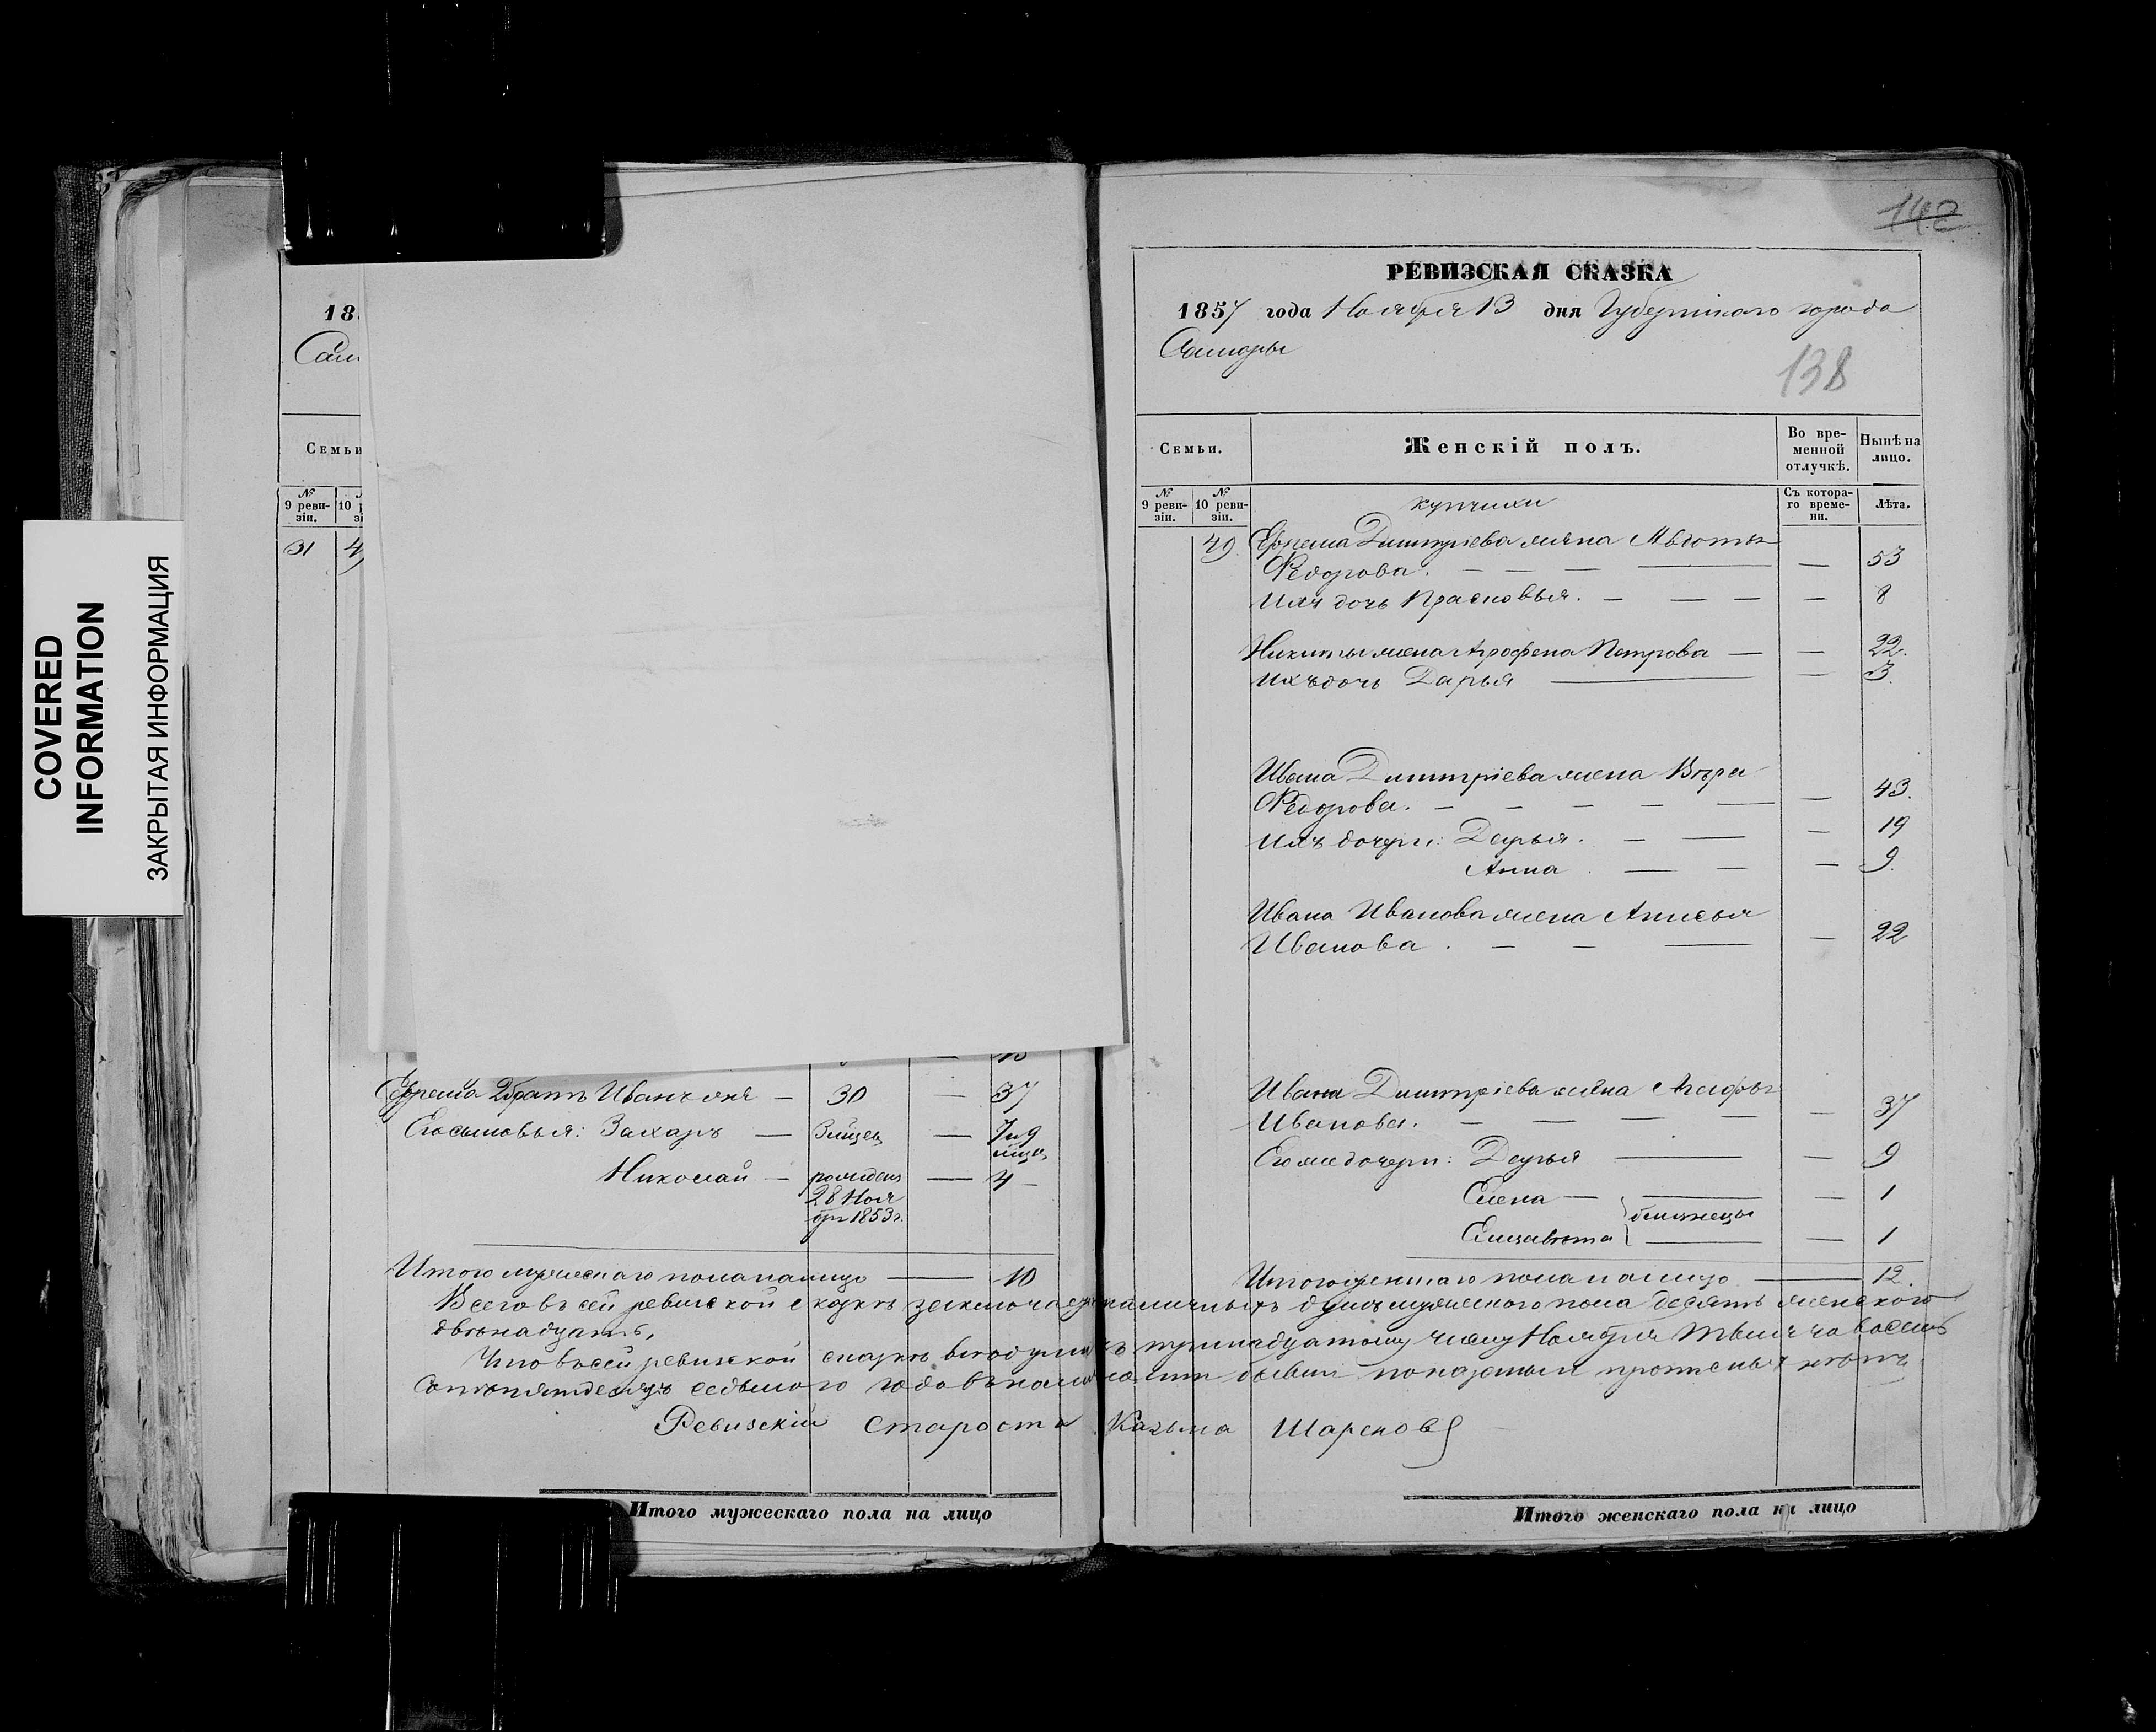 COVERED
INFORMATION
ЗАКРЫТАЯ ИНФОРМАЦИЯ
18
Сам
Семьи
№
9 реви-
зіи.
10
31
Ефрема 2 братъ Иванъ
30
—
37
Его сыновья: Захаръ —
3 мѣсец
—
7 и 9
мѣсц.
Николай —
рожденъ
28 Ноя
бря 1853 г.
—
4 —
Итого мужескаго пола на лицо —
10
Итого мужескаго пола на лицо
142
РЕВИЗСКАЯ СКАЗКА
1857 года Ноября 13 дня Губернскаго города
Самары
138
Семьи.
Женскій полъ.
Во вре-
менной
отлучкѣ.
Нынѣ на
лицо.
№
9 реви-
зіи.
№
10 реви-
зіи.
купчихи
Съ котора-
го време-
ни.
Лѣта.
49. Ефрема Дмитріева жена Авдотья
Федорова. — — — — — 53
Ихъ дочь Прасковья. — — — — 8
Никиты жена Агрофена Петрова — — 22.
Ихъ дочь Дарья — — 3.
Ивана Дмитріева жена Вѣра
Федорова. — — — — — — 43.
Ихъ дочери: Дарья. — — — 19
Анна. — — — 9.
Ивана Иванова жена Анисья
Иванова. — — — — 22
Ивана Дмитріева жена Агафья
Иванова. — — — — — 37
Его же дочери: Дарья — — 9
Елена — — — 1
близнецы
Елизавета — — 1
Итого женскаго пола на лицо — 12.
Всего въ сей ревизской сказкѣ заключается наличныхъ душъ мужескаго пола десять женскаго
двѣнадцать,
Что въ сей ревизской сказкѣ къ тринадцатому числу Ноября тысяча восемь
сотъ пятьдесятъ седьмого года
Ревизскій староста Казьма Шарков
Итого женскаго пола на лицо